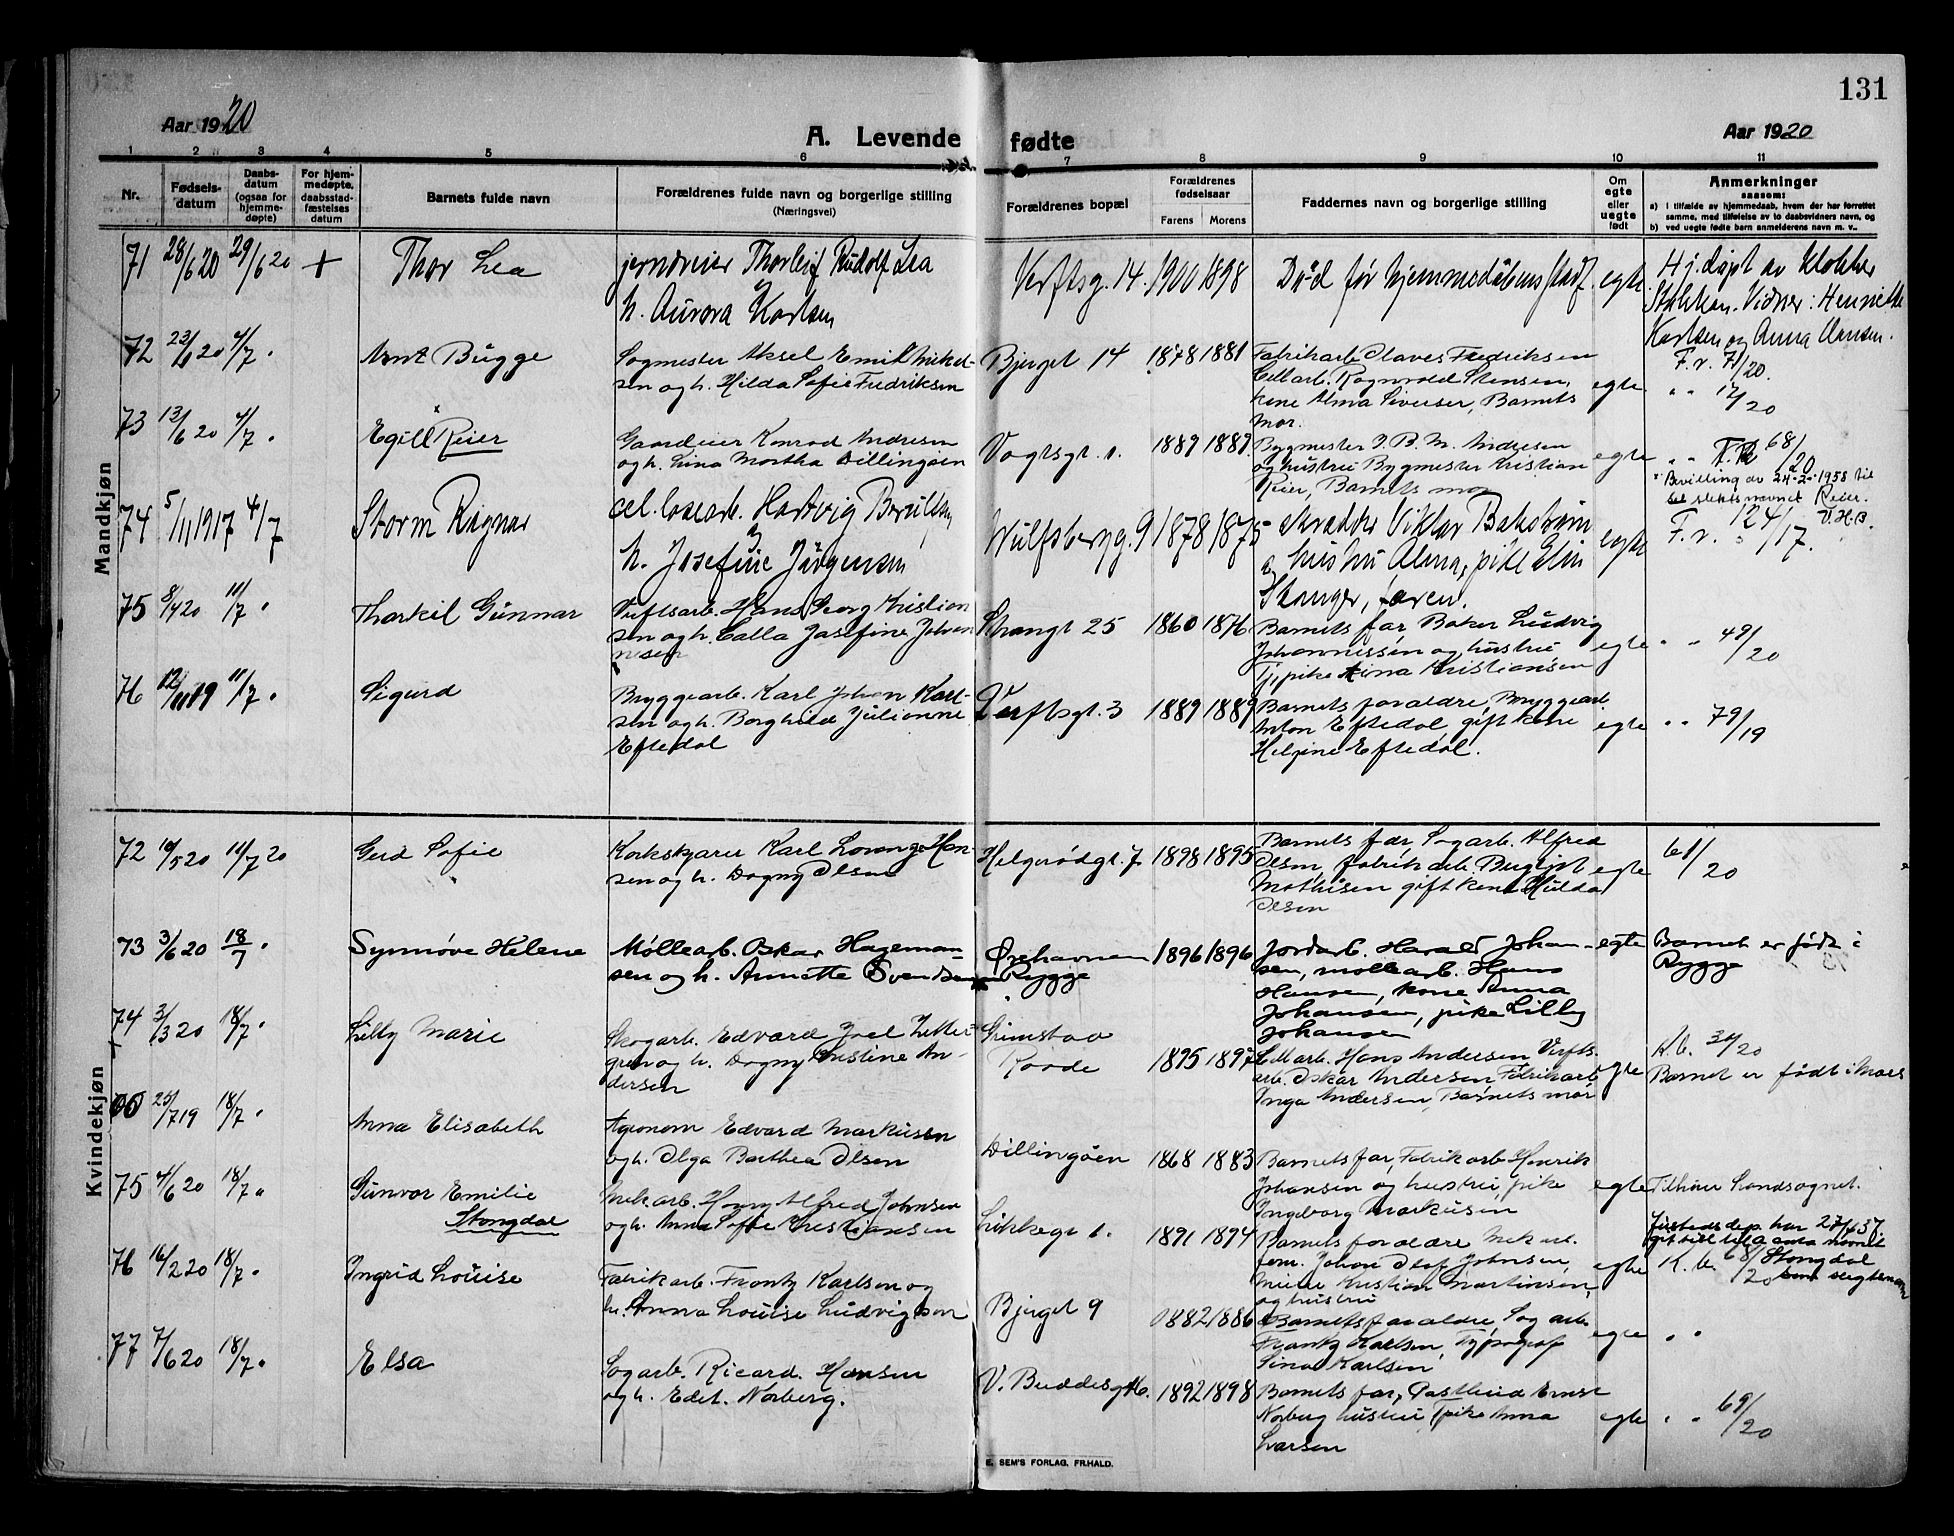 131
Aar 1920
A. Levende fødte
Aar 1920
1 2 3 4 5 6 7 8 9 10 11
Nr.
Fødsels-
datum
Daabs-
datum
(ogsaa for
hjemme-
døpte)
For hjem-
medøpte,
daabsstad-
fæstelses
datum
Barnets fulde navn
Forældrenes fulde navn og borgerlige stilling
(Næringsvei)
Forældrenes bopæl
Forældrenes
fødselsaar
Farens Morens
Faddernes navn og borgerlige stilling
Om
egte
eller
uegte
født
Anmerkninger
saasom:
a) i tilfælde av hjemmedaab, hvem der har forrettet
samme, med tilføielse av to daabsvidners navn, og
b) ved uegte fødte barn anmelderens navn m. v..
Mandkjøn
71 28/6 20 29/6 20 + Thor Lea
jerndreier Thorleif Rudolf Lea
h. Aurora Karlsen
Verftsg. 14. 1900 1898
Död før hjemmedåbens stadf. egte
Hj.døpt av klokker
Stokken. Vidner: Henriette
Karlsen og Anna Hansen.
72 23/1 20 4/7 Arnt Bugge
Sogmester Aksel Emil Mikel-
sen og h. Hilda Sofie Fredriksen
Bjerget 14 1878 1881
Fabrikarb. Olaves Fredriksen
Cellarb. Ragnvald Stensen,
kone Alma Siverser, Barnets
mor.
egte
F. v. 7/20.
" " 12/20
73 13/6 20 4/7 Egill Reier
Gaardeier Konrad Andresen
og h. Lina Martha Dillingøen
Vogtsgt. 1. 1889 1889
Bygmester J. B. M. Andresen
og hustru Bygmester Kristian
Reier, Barnets mor
egte
" " 68/20
Bevilling av 24-2-1958 til
slektsnavnet Reier.
V.H.B.
74 5/11 1917 4/7 Storm Ragnar
cel. losearb. Hartvig Berulfsen
og
h. Josefine Jørgensen
Wulfsbergg. 9 1878 1875
skrædder Viktor Bakstrøm
og hustru Alma, pike Elin
Stanger, faren.
egte
F. v. 124/17.
75 8/4 20 11/7 Thorkil Gunnar
Verftsarb. Hans Georg Kristian
sen og h. Calla Josefine Johan
nesen
Strangt 25 1860 1876
Barnets far Baker Ludvig
Johannissen og hustru
Tj.pike Anna Kristiansen
egte " " 49/20
76 12/11 19 11/7 Sigurd
Bryggearb. Karl Johan Karl-
sen og h. Borghild Julianne
Eftedal
Verftsgt. 3 1889 1889
Barnets foraldre, Bryggearb.
Anton Eftedal gift kone
Helgine Eftedal.
egte " " 79/19
Kvindekjøn
72 10/5 20 11/7 20 Gerd Sofie
Korkskjærer Karl Lorang Han-
sen og h. Dagny Olsen
Helgerødgt. 7 1898 1895
Barnets far Sogarb. Alfred
Olsen, fabrikarb. Bergljot
Mathisen gift kone Hulda
Olsen
egte 61/20
73 3/6 20 18/7 Synnøve Helene
Møllearb. Oskar Hageman-
sen og h. Annette Svendsen
Ørehavnen
Rygge
1896 1896
Jordarb. Harald Johan-
sen, møllearb. Hans
Hansen, kone Anna
Johansen, pike Lilly
Johansen
egte
Barnet er født i
Rygge
74 3/3 20 18/7 Lilly Marie
Skogarb. Edvard Joel Zetter-
gren og h. Dagny Kristine An-
dersen
Grimstad
Raade
1895 1897
Cellarb. Hans Andersen Verfts-
arb. Oskar Andersen Fabrikarb.
Inga Andersen, Barnets mor
egte
K.b. 30/20
Barnet er født i Mars
25/7 19 18/7 Anna Elisabeth
Agronom Edvard Markusen
og h. Olga Barthea Olsen
Dillingøen 1868 1883
Barnets far, Fabrikarb. Henrik
Johansen og hustru, pike
Ingeborg Markusen
egte Tilhører Landsognet.
75 4/6 20 18/7 Gunvor Emilie
Stongdal
Mek arb. Harry Alfred Johnsen
og h. Anna Sofie Kristiansen
Likkegt 1. 1891 1894
Barnets foraldre Mek arb.
fem. Johan Olaf Johnsen,
Murer Kristian Martinsen,
og hustru
egte
Justedsdep. har 27/4 37
git till til å anta navnet
Stongdal
som slegtsnavn
K. b. 68/20
76 16/2 20 18/7 Ingrid Louise
Fabrikarb. Frantz Karlsen og
h. Anna Louise Ludvigsen
Bjerget 9 1882 1886
Barnets foraldre, Sog arb.
Frantz Karlsen, Typograf
Sina Karlsen
egte " "
77 7/6 20 18/7 Elsa
Sogarb. Ricard. Hansen
og h. Edet. Norberg.
V. Buddesgt 16. 1892 1898
Barnets far, Postbud Ernst
Norberg hustru, Tj.pike Anna
Larsen
egte " " 69/20
E. SEM'S FORLAG, FR.HALD.